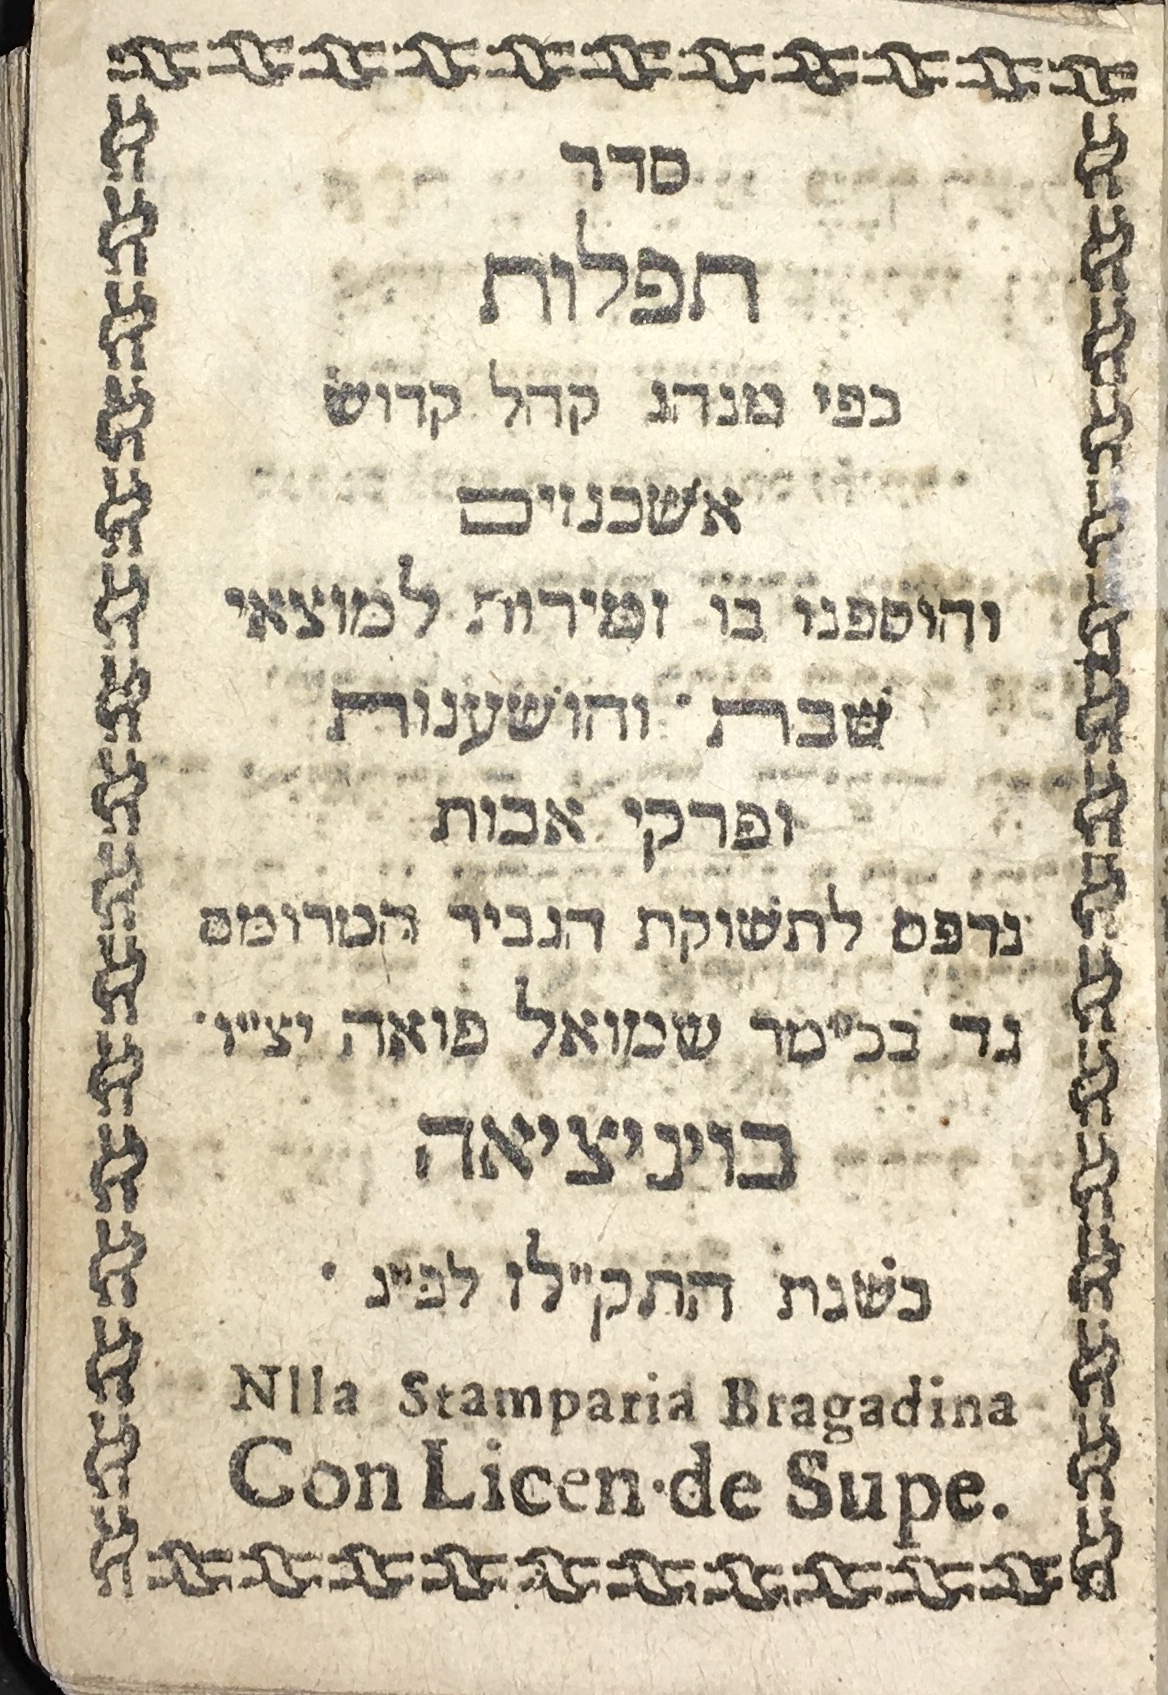 סדר
תפלות
כפי מנהג קהל קדוש
אשכנזים
והוספנו בו זמירות למוצאי
שבת · והושענות
ופרקי אבות
נדפס לתשוקת הגביר המרומם
גד בכ״מר שמואל פואה יצ״ו ·
בויניציאה
בשנת התק״לו לפ״ג ·
Nlla Stamparia Bragadina
Con Licen·de Supe.